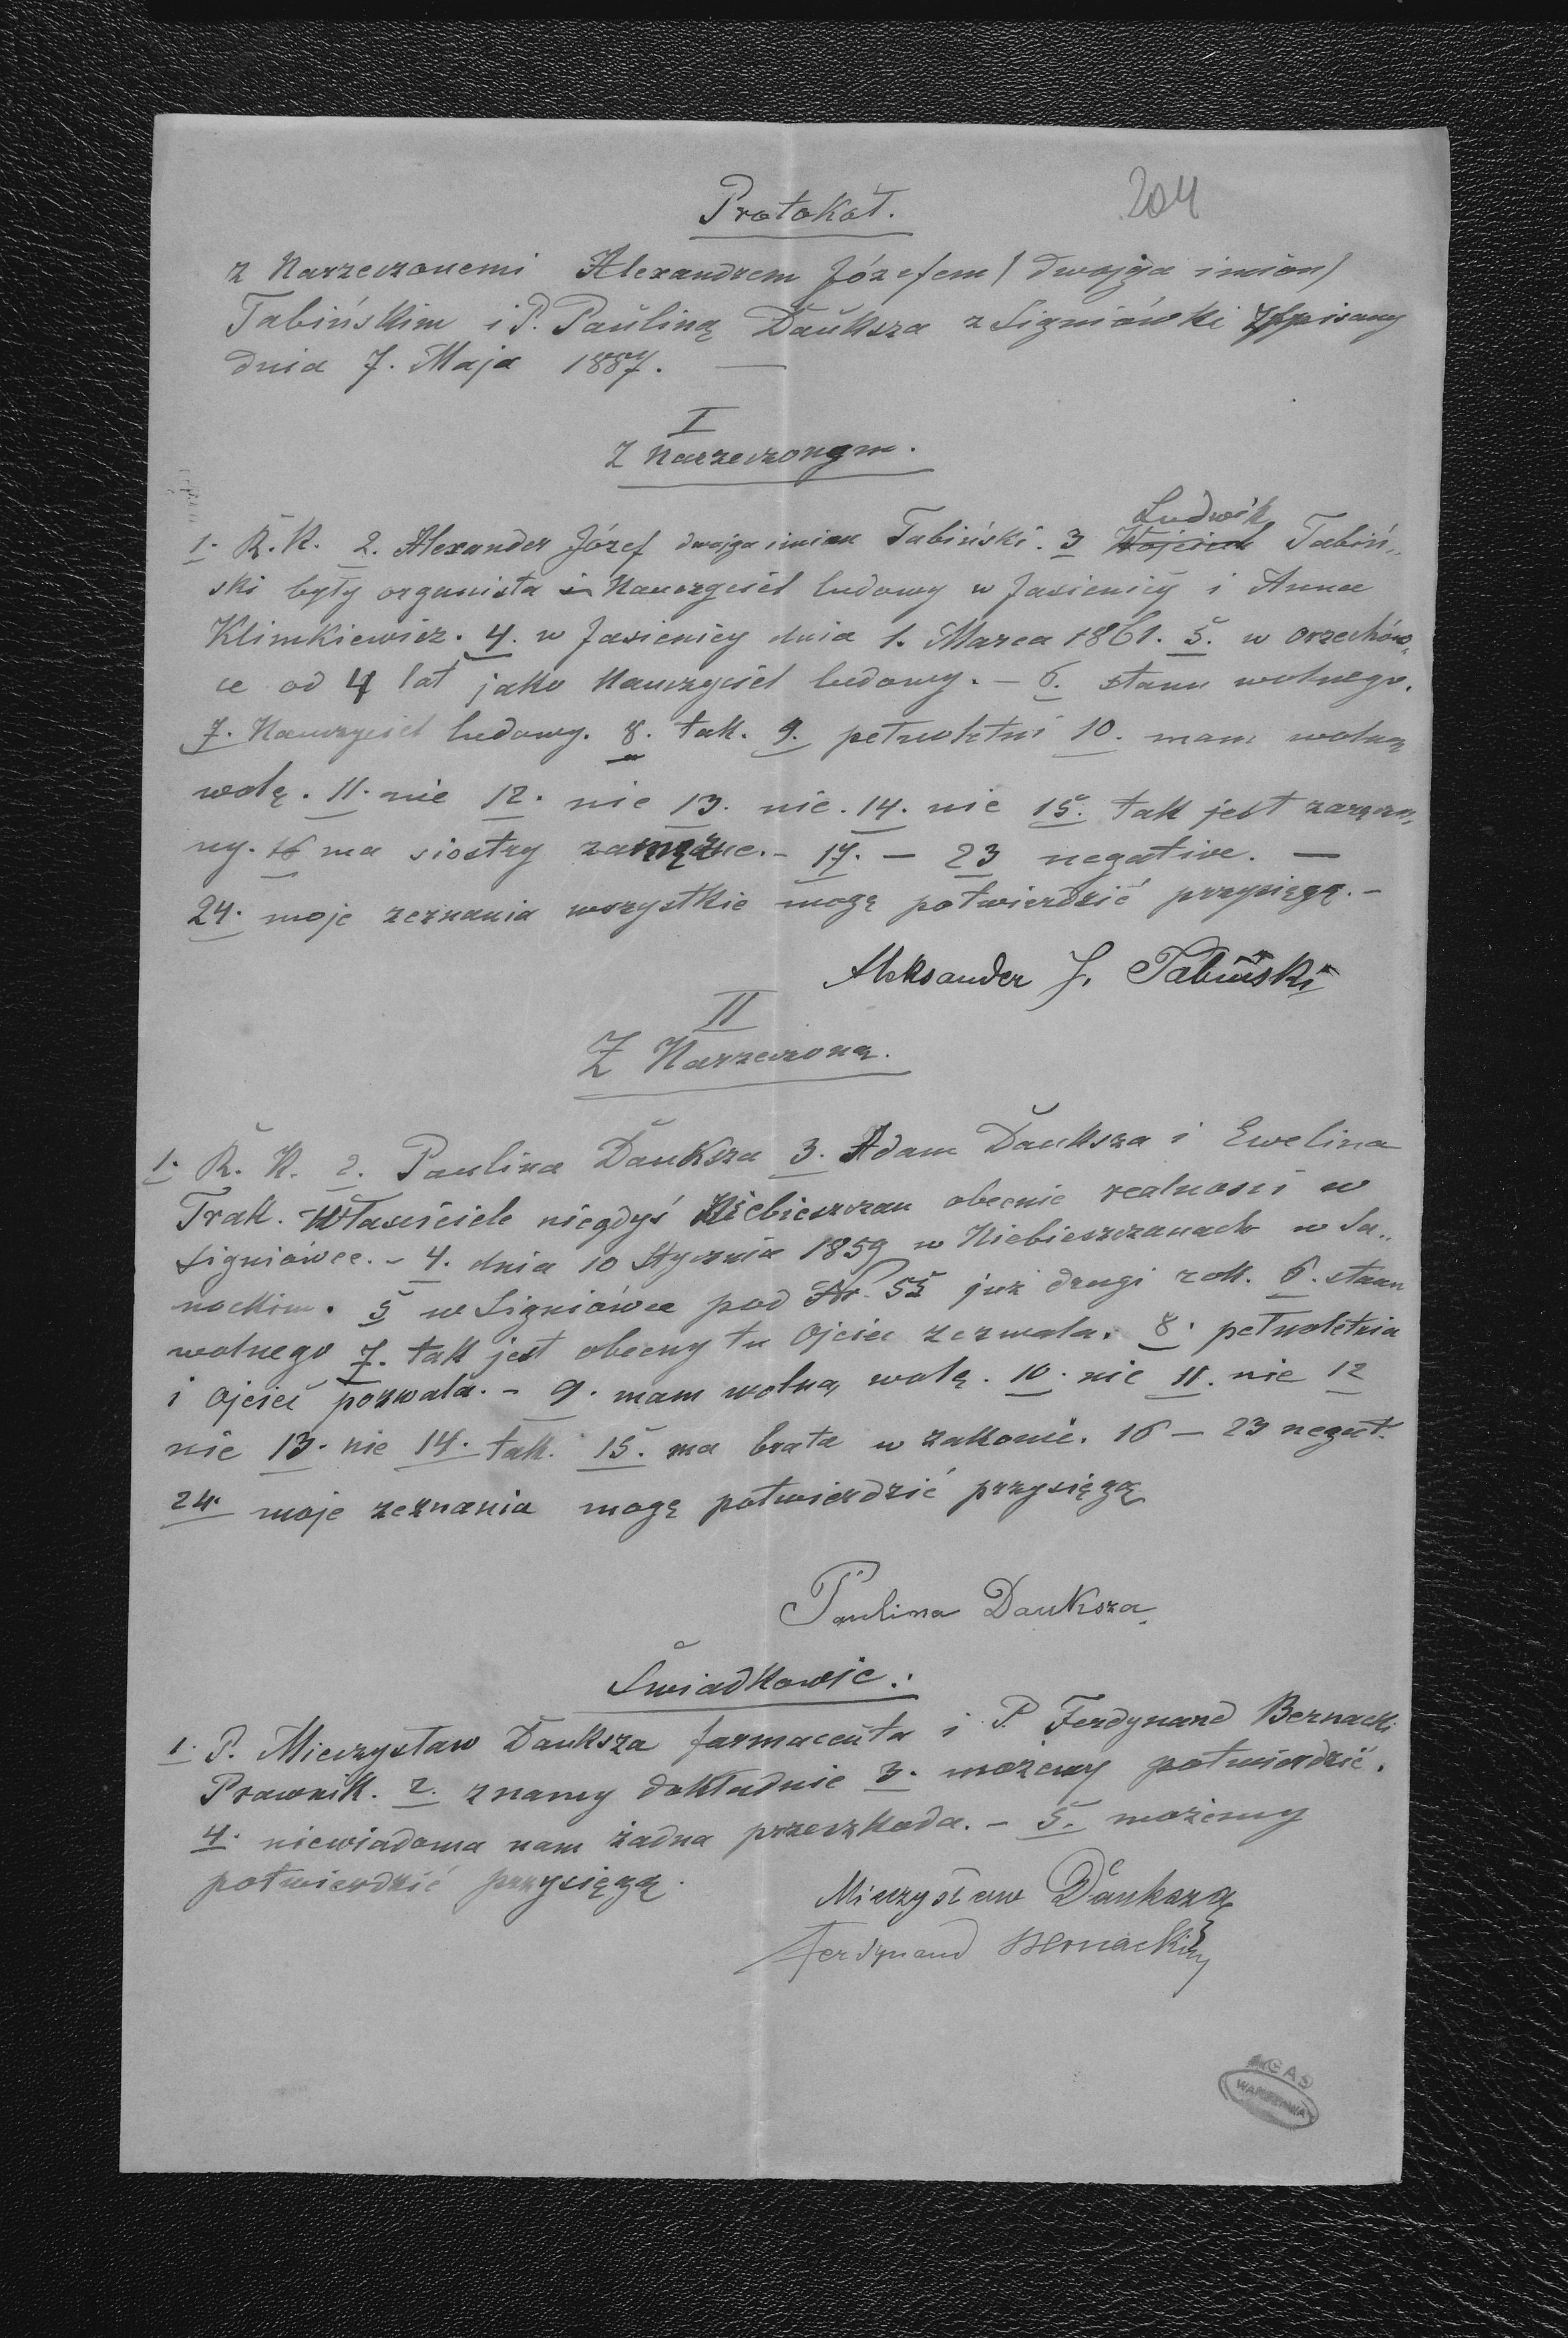 204
Protokół.
z Narzeczonemi Alexandrem Józefem / dwojga imion /
Tabińskim i P. Pauliną Dauksza z Signiówki spisany
dnia 7. Maja 1887. —
I
Z Narzeczonym.
Ludwik
1. R. K. 2. Alexander Józef dwojga imion Tabiński. 3 Wojciech Tabiń„
ski były organista i Nauczyciel ludowy w Jasienicy i Anna
Klimkiewicz. 4. w Jasienicy dnia 1. Marca 1861. 5. w Orzechów„
ce od 4 lat jako Nauczyciel ludowy. – 6. stanu wolnego.
7. Nauczyciel ludowy. 8. tak. 9. pełnoletni 10. mam wolną
wolę. 11. nie 12. nie 13. nie. 14. nie 15. tak jest zaręczo„
ny. 16 ma siostry zamężne. – 17. – 23 negative. —
24. moje zeznania wszystkie mogę potwierdzić przysięgą. –
Aleksander J. Tabiński
II
Z Narzeczoną.
1. R. K. 2. Paulina Dauksza 3. Adam Dauksza i Ewelina
Trak. Właściciele niegdyś Niebieszczan obecnie realności w
Signiówce. – 4. dnia 10 Stycznia 1859 w Niebieszczanach w Sa„
nockim. 5 w Signiówce pod Nr. 55 już drugi rok. 6. stanu
wolnego 7. tak jest obecny tu Ojciec zezwala. 8. pełnoletnia
i Ojciec pozwala. – 9. mam wolną wolę. 10. nie 11. nie 12
nie 13. nie 14. tak. 15. ma brata w zakonie. 16 – 23 negat.
24. moje zeznania mogę potwierdzić przysięgą
Paulina Dauksza
Świadkowie:
1. P. Mieczysław Dauksza farmaceuta i P. Ferdynand Bernacki
Prawnik. 2. znamy dokładnie 3. możemy potwierdzić.
4. niewiadoma nam żadna przeszkoda. – 5. możemy
potwierdzić przysięgą.
Mieczysław Dauksza
Ferdynand Bernacki
AGAD
WARSZAWA